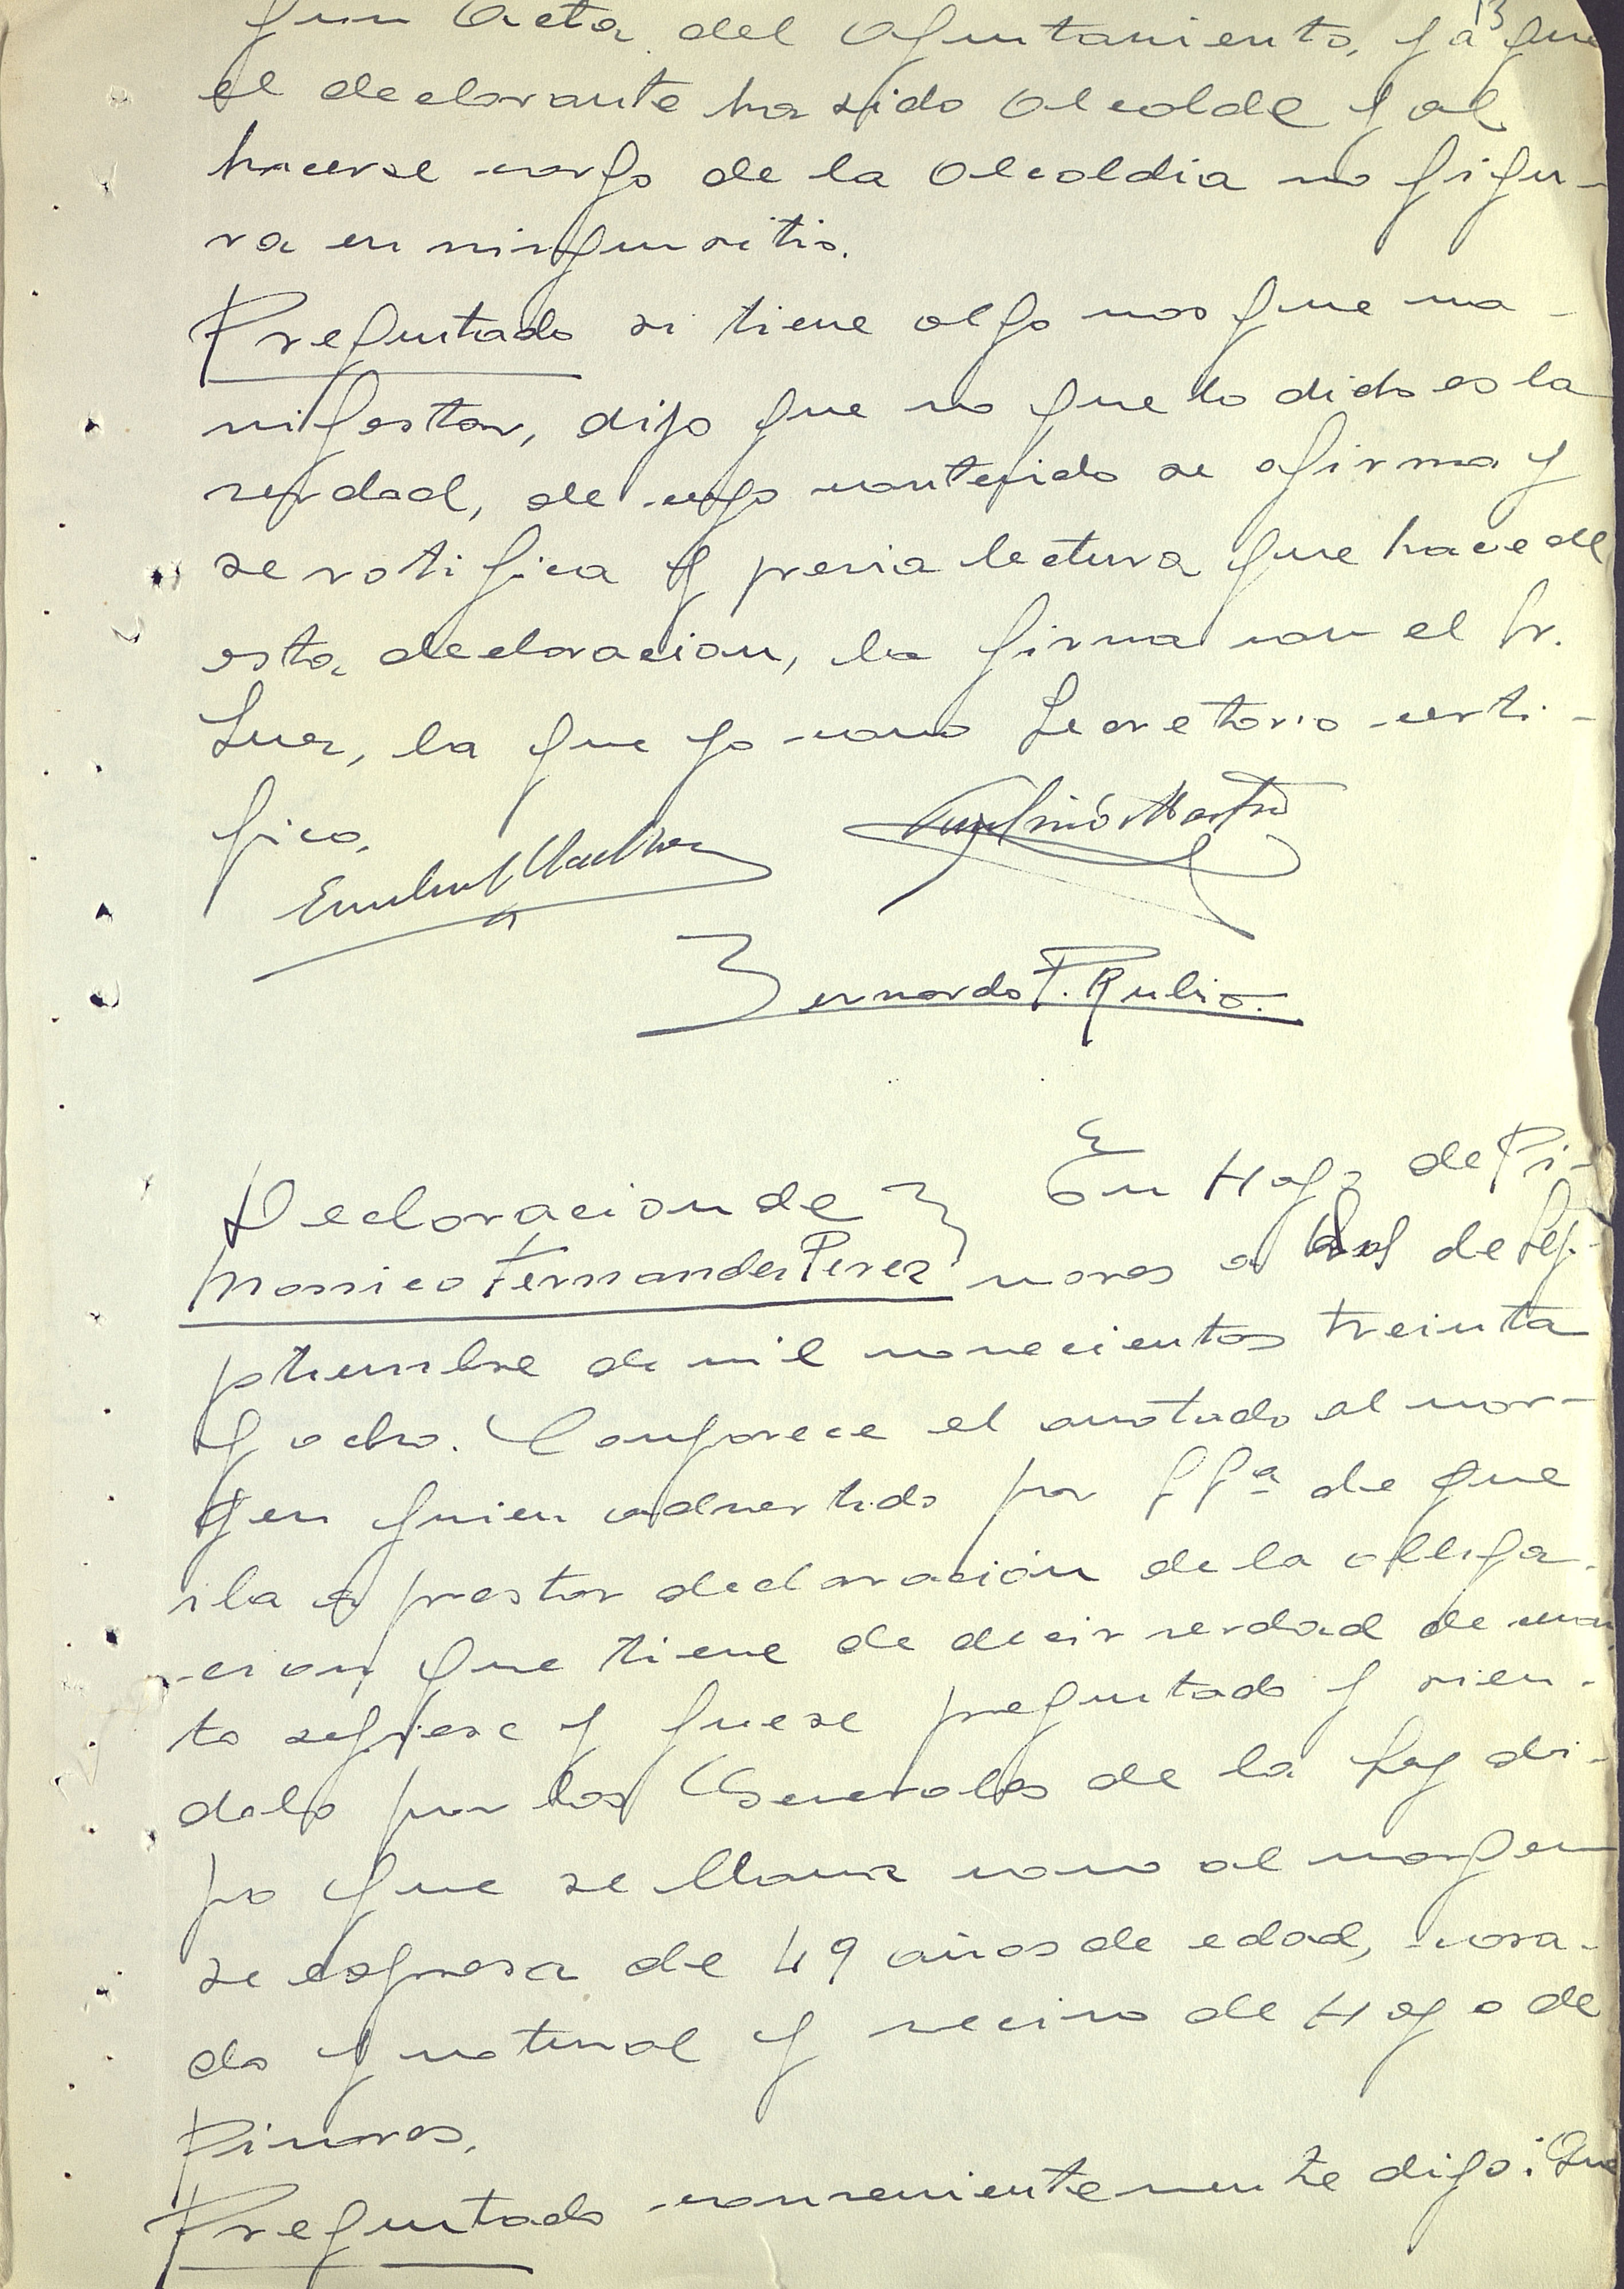 13
gun Acta del Ayuntamiento, ya que
el declarante ha sido Alcalde y al
hacerse cargo de la Alcaldia no figu-
ra en ningun sitio.
Preguntado si tiene algo mas que ma-
nifestar, dijo que no que lo dicho es la
verdad, de cuyo contenido se afirma y
se ratifica y previa lectura que hace de
esta declaracion, la firma con el Sr.
Juez, la que yo como Secretario certi-
fico,
Bernardo F. Rubio.
Declaracion de
Marrico Fernandez Perez
En Hoyo de Pi-
nares a de Se-
ptiembre de mil novecientos treinta
y ocho. Comparece el anotado al mar-
gen quien advertido por SSª de que
iba a prestar declaración de la obliga-
cion que tiene de decir verdad de cuan
to supiese y fuese preguntado y sien-
dolo por las Generales de la Ley di-
jo que se llama como al margen
se expresa de 49 años de edad, casa-
do y natural y vecino de Hoyo de
Pinares.
Preguntado convenientemente dijo: Que